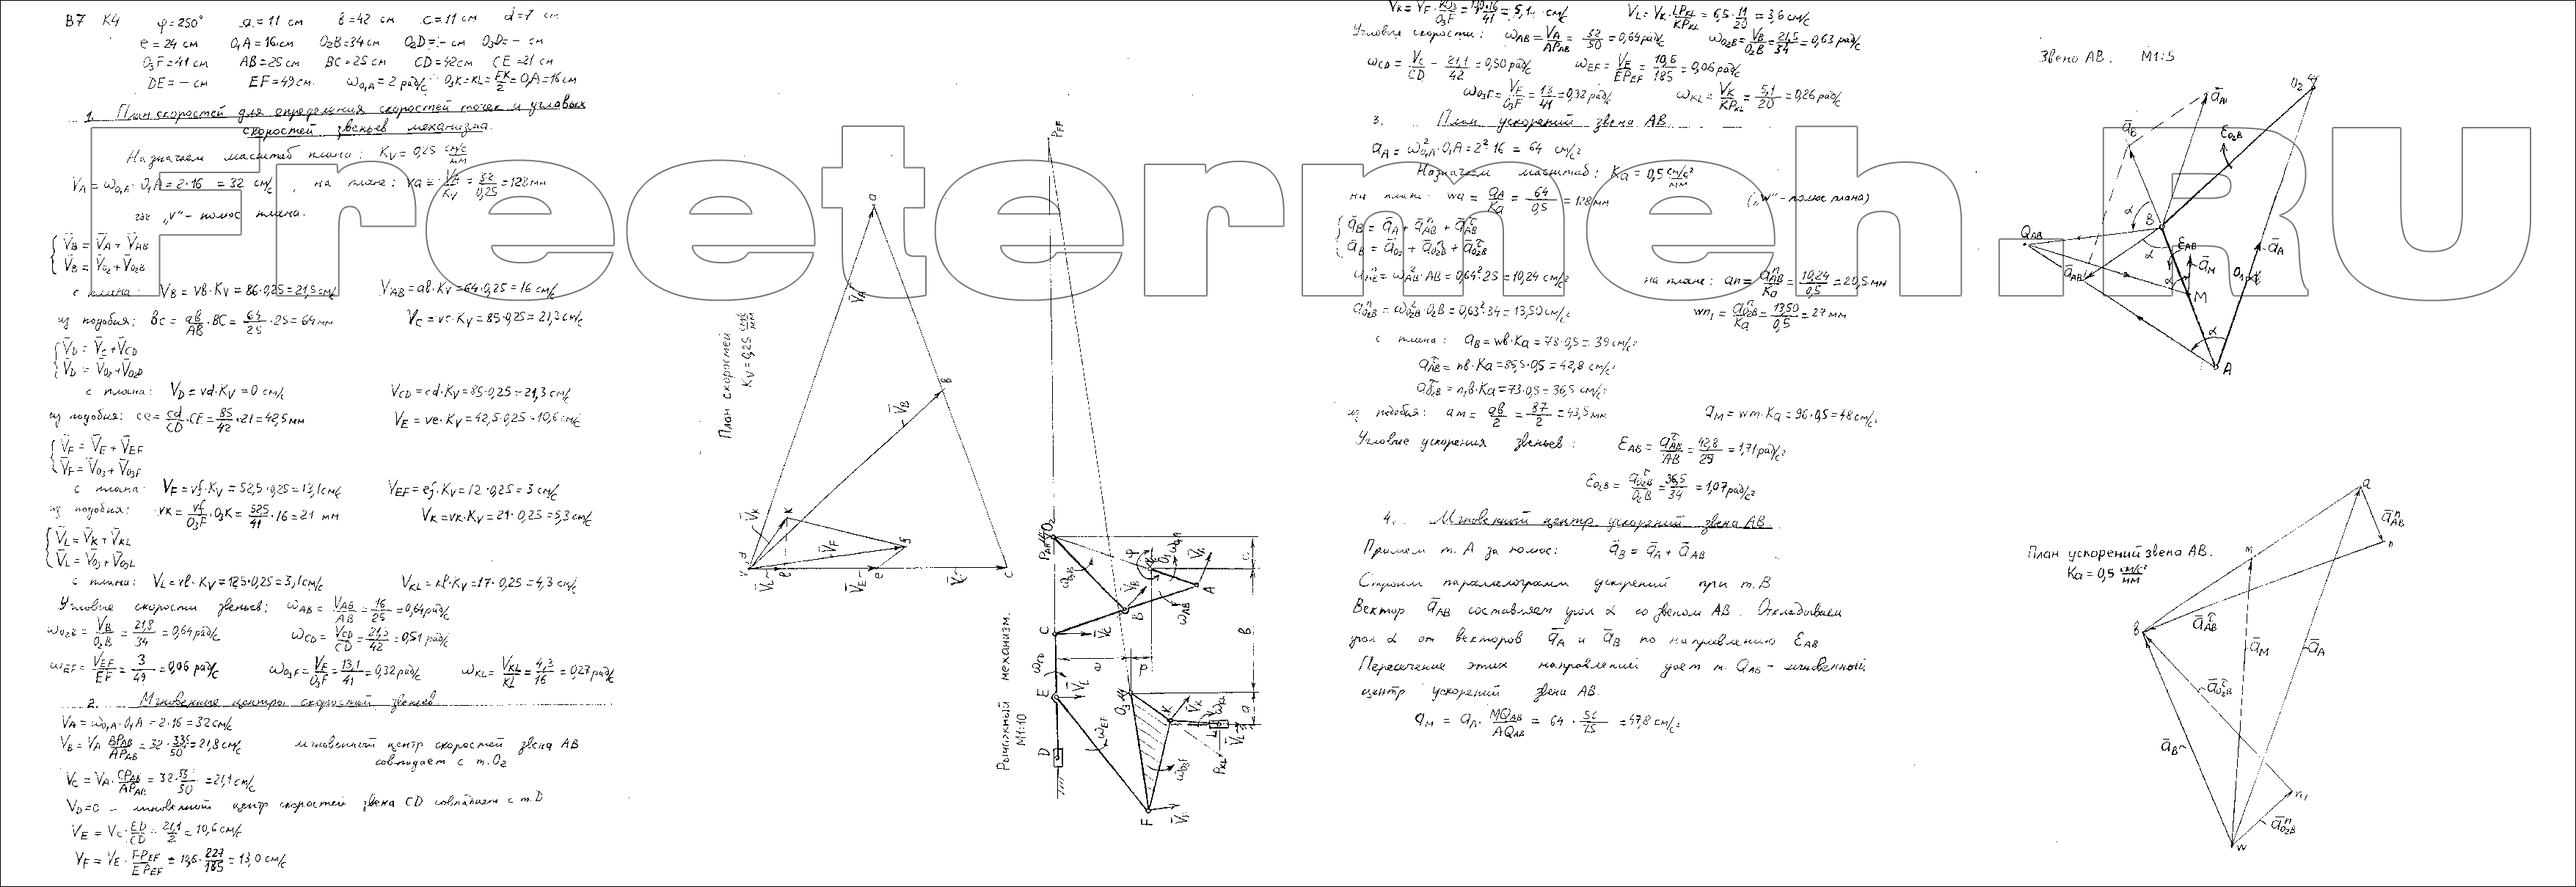 В7 К4 φ=250° a=11 см в=42 см c=11 см d=7 см
e=24 см O₁A=16см O₂B=34см O₂D=- см O₃D=- см
O₃F=41см AB=25см BC=25 см CD=42см CE=21 см
DE=- см EF=49см. ω_O₁A=2 рад/с O₃K=KL=EK/2=O₁A=16см
1. План скоростей для определения скоростей точек и угловых
скоростей звеньев механизма.
Назначаем масштаб плана: K_V=0,25 см/с/мм
V_A=ω_O₁A·O₁A=2·16=32 см/с, на плане: va=V_A/K_V=32/0,25=128мм
где „v"-полюс плана.
V̄_B=V̄_A+V̄_AB
V̄_B=V̄_O₂+V̄_O₂B
с плана: V_B=vв·K_V=86·0,25=21,5см/с V_AB=aв·K_V=64·0,25=16 см/с
из подобия: вc=aв/AB·BC=64/25·25=64мм V_C=vc·K_V=85·0,25=21,3см/с
V̄_D=V̄_C+V̄_CD
V̄_D=V̄_O₂+V̄_O₂D
с плана: V_D=vd·K_V=0 см/с V_CD=cd·K_V=85·0,25=21,3см/с
из подобия: ce=cd/CD·CE=85/42·21=42,5мм V_E=ve·K_V=42,5·0,25=10,6см/с
V̄_F=V̄_E+V̄_EF
V̄_F=V̄_O₃+V̄_O₃F
с плана: V_F=vf·K_V=52,5·0,25=13,1см/с V_EF=ef·K_V=12·0,25=3 см/с
из подобия: vк=vf/O₃F·O₃K=52,5/41·16=21 мм V_K=vк·K_V=21·0,25=5,3см/с
V̄_L=V̄_K+V̄_KL
V̄_L=V̄_O₃+V̄_O₃L
с плана: V_L=vℓ·K_V=12,5·0,25=3,1см/с V_KL=кℓ·K_V=17·0,25=4,3 см/с
Угловые скорости звеньев: ω_AB=V_AB/AB=16/25=0,64рад/с
ω_O₂B=V_B/O₂B=21,8/34=0,64рад/с ω_CD=V_CD/CD=21,3/42=0,51рад/с
ω_EF=V_EF/EF=3/49=0,06 рад/с ω_O₃F=V_F/O₃F=13,1/41=0,32рад/с ω_KL=V_KL/KL=4,3/16=0,27рад/с
2. Мгновенные центры скоростей звеньев.
V_A=ω_O₁A·O₁A=2·16=32см/с
V_B=V_A BP_AB/AP_AB=32·33,5/50=21,8см/с мгновенный центр скоростей звена AB
совпадает с т.O₂
V_C=V_A·CP_AB/AP_AB=32·33/50=21,1см/с
V_D=0 - мгновенный центр скоростей звена CD совпадает с т.D
V_E=V_C·ED/CD=21,1/2=10,6см/с
V_F=V_E·FP_EF/EP_EF=10,6·227/185=13,0см/с
План скоростей
K_V=0,25 см/с/мм
a
V̄_A
в
V̄_B
V̄_K
к
V̄_F
f
v
V̄_L
ℓ
V̄_E
e
V̄_C
c
Рычажный механизм.
М1:10
P_EF
P_AB
O₂
ω_O₂B
φ
O₁
ω_O₁A
V̄_A
V̄_B
A
B
ω_AB
C
V̄_C
ω_CD
E
V̄_E
D
ω_EF
O₃
K
V̄_K
ω_KL
L
V̄_L
P_KL
ω_O₃F
F
V̄_F
c
в
a
V_K=V_F·KO₃/O₃F=130·16/41=5,1 см/с V_L=V_K·LP_KL/KP_KL=6,5·11/20=3,6см/с
Угловые скорости: ω_AB=V_A/AP_AB=32/50=0,64рад/с ω_O₂B=V_B/O₂B=21,5/34=0,63рад/с
ω_CD=V_C/CD=21,1/42=0,50рад/с ω_EF=V_E/EP_EF=10,6/185=0,06рад/с
ω_O₃F=V_F/O₃F=13/41=0,32рад/с ω_KL=V_K/KP_KL=5,1/20=0,26рад/с
3. План ускорений звена AB.
a_A=ω²_O₁A·O₁A=2²·16=64 см/с²
Назначаем масштаб: Ka=0,5 см/с²/мм
на плане: wa=a_A/Ka=64/0,5=128мм („w"-полюс плана)
ā_B=ā_A+ā^n_AB+ā^τ_AB
ā_B=ā_O₂+ā^n_O₂B+ā^τ_O₂B
a^n_AB=ω²_AB·AB=0,64²·25=10,24 см/с² на плане: an=a^n_AB/Ka=10,24/0,5=20,5мм
a^n_O₂B=ω²_O₂B·O₂B=0,63²·34=13,50см/с² wn₁=a^n_O₂B/Ka=13,50/0,5=27мм
с плана: a_B=wв·Ka=78·0,5=39см/с²
a^τ_AB=nв·Ka=85,5·0,5=42,8см/с²
a^τ_O₂B=n₁в·Ka=73·0,5=36,5 см/с²
из подобия: am=aв/2=87/2=43,5мм a_M=wm·Ka=96·0,5=48см/с²
Угловые ускорения звеньев: ε_AB=a^τ_AB/AB=42,8/25=1,71рад/с²
ε_O₂B=a^τ_O₂B/O₂B=36,5/34=1,07рад/с²
4. Мгновенный центр ускорений звена AB
Примем т.A за полюс: ā_B=ā_A+ā_AB
Строим параллелограмм ускорений при т.B
Вектор ā_AB составляет угол α со звеном AB. Откладываем
угол α от векторов ā_A и ā_B по направлению ε_AB
Пересечение этих направлений дает т. Q_AB-мгновенный
центр ускорений звена AB.
a_M=a_A·MQ_AB/AQ_AB=64·56/75=47,8см/с²
Звено AB. М1:5
O₂
ā_A
ā_B
ε_O₂B
α
B
Q_AB
ε_AB
α
ā_AB
ā_M
α
M
O₁
ā_A
α
A
План ускорений звена AB.
Ka=0,5 см/с²/мм
a
ā^n_AB
n
m
в
ā^τ_AB
ā_M
ā_A
ā^τ_O₂B
ā_B
n₁
ā^n_O₂B
w
Freetermeh.RU